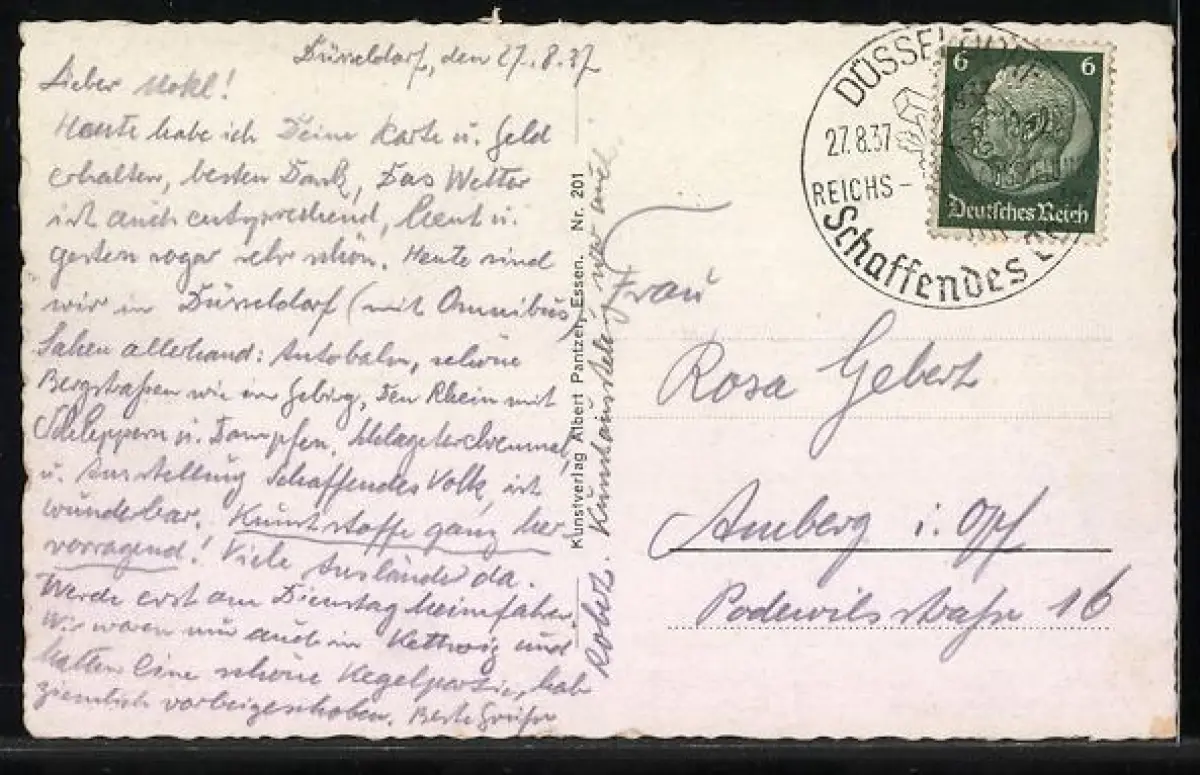 Düsseldorf, den 27.8.37
Lieber Mokl!
Heute habe ich Deine Karte u. Geld
erhalten, besten Dank, Das Wetter
ist auch entsprechend, heut u.
gestern sogar sehr schön. Heute sind
wir in Düsseldorf (mit Omnibus)
Sahen allerhand: Autobahn, schöne
Bergstraßen wie im Gebirg, den Rhein mit
Schleppern u. Dampfern, Schlageter
u. Ausstellung Schaffendes Volk, ist
wunderbar. Kunststoffe ganz her
vorragend! Viele Ausländer da.
Werde erst am Dienstag heimfahren.
Wir waren nur auch in Kettwig und
hatten eine schöne Kegelpartie, hab
ziemlich vorbeigeschoben. Beste Grüße
Robert.
Kunstverlag Albert Pantzer, Essen. Nr. 201
DÜSSELDORF
27.8.37
REICHS-
Schaffendes
6 6
Deutsches Reich
Frau
Rosa Gebert
Amberg i. Opf
Podewilsstraße 16